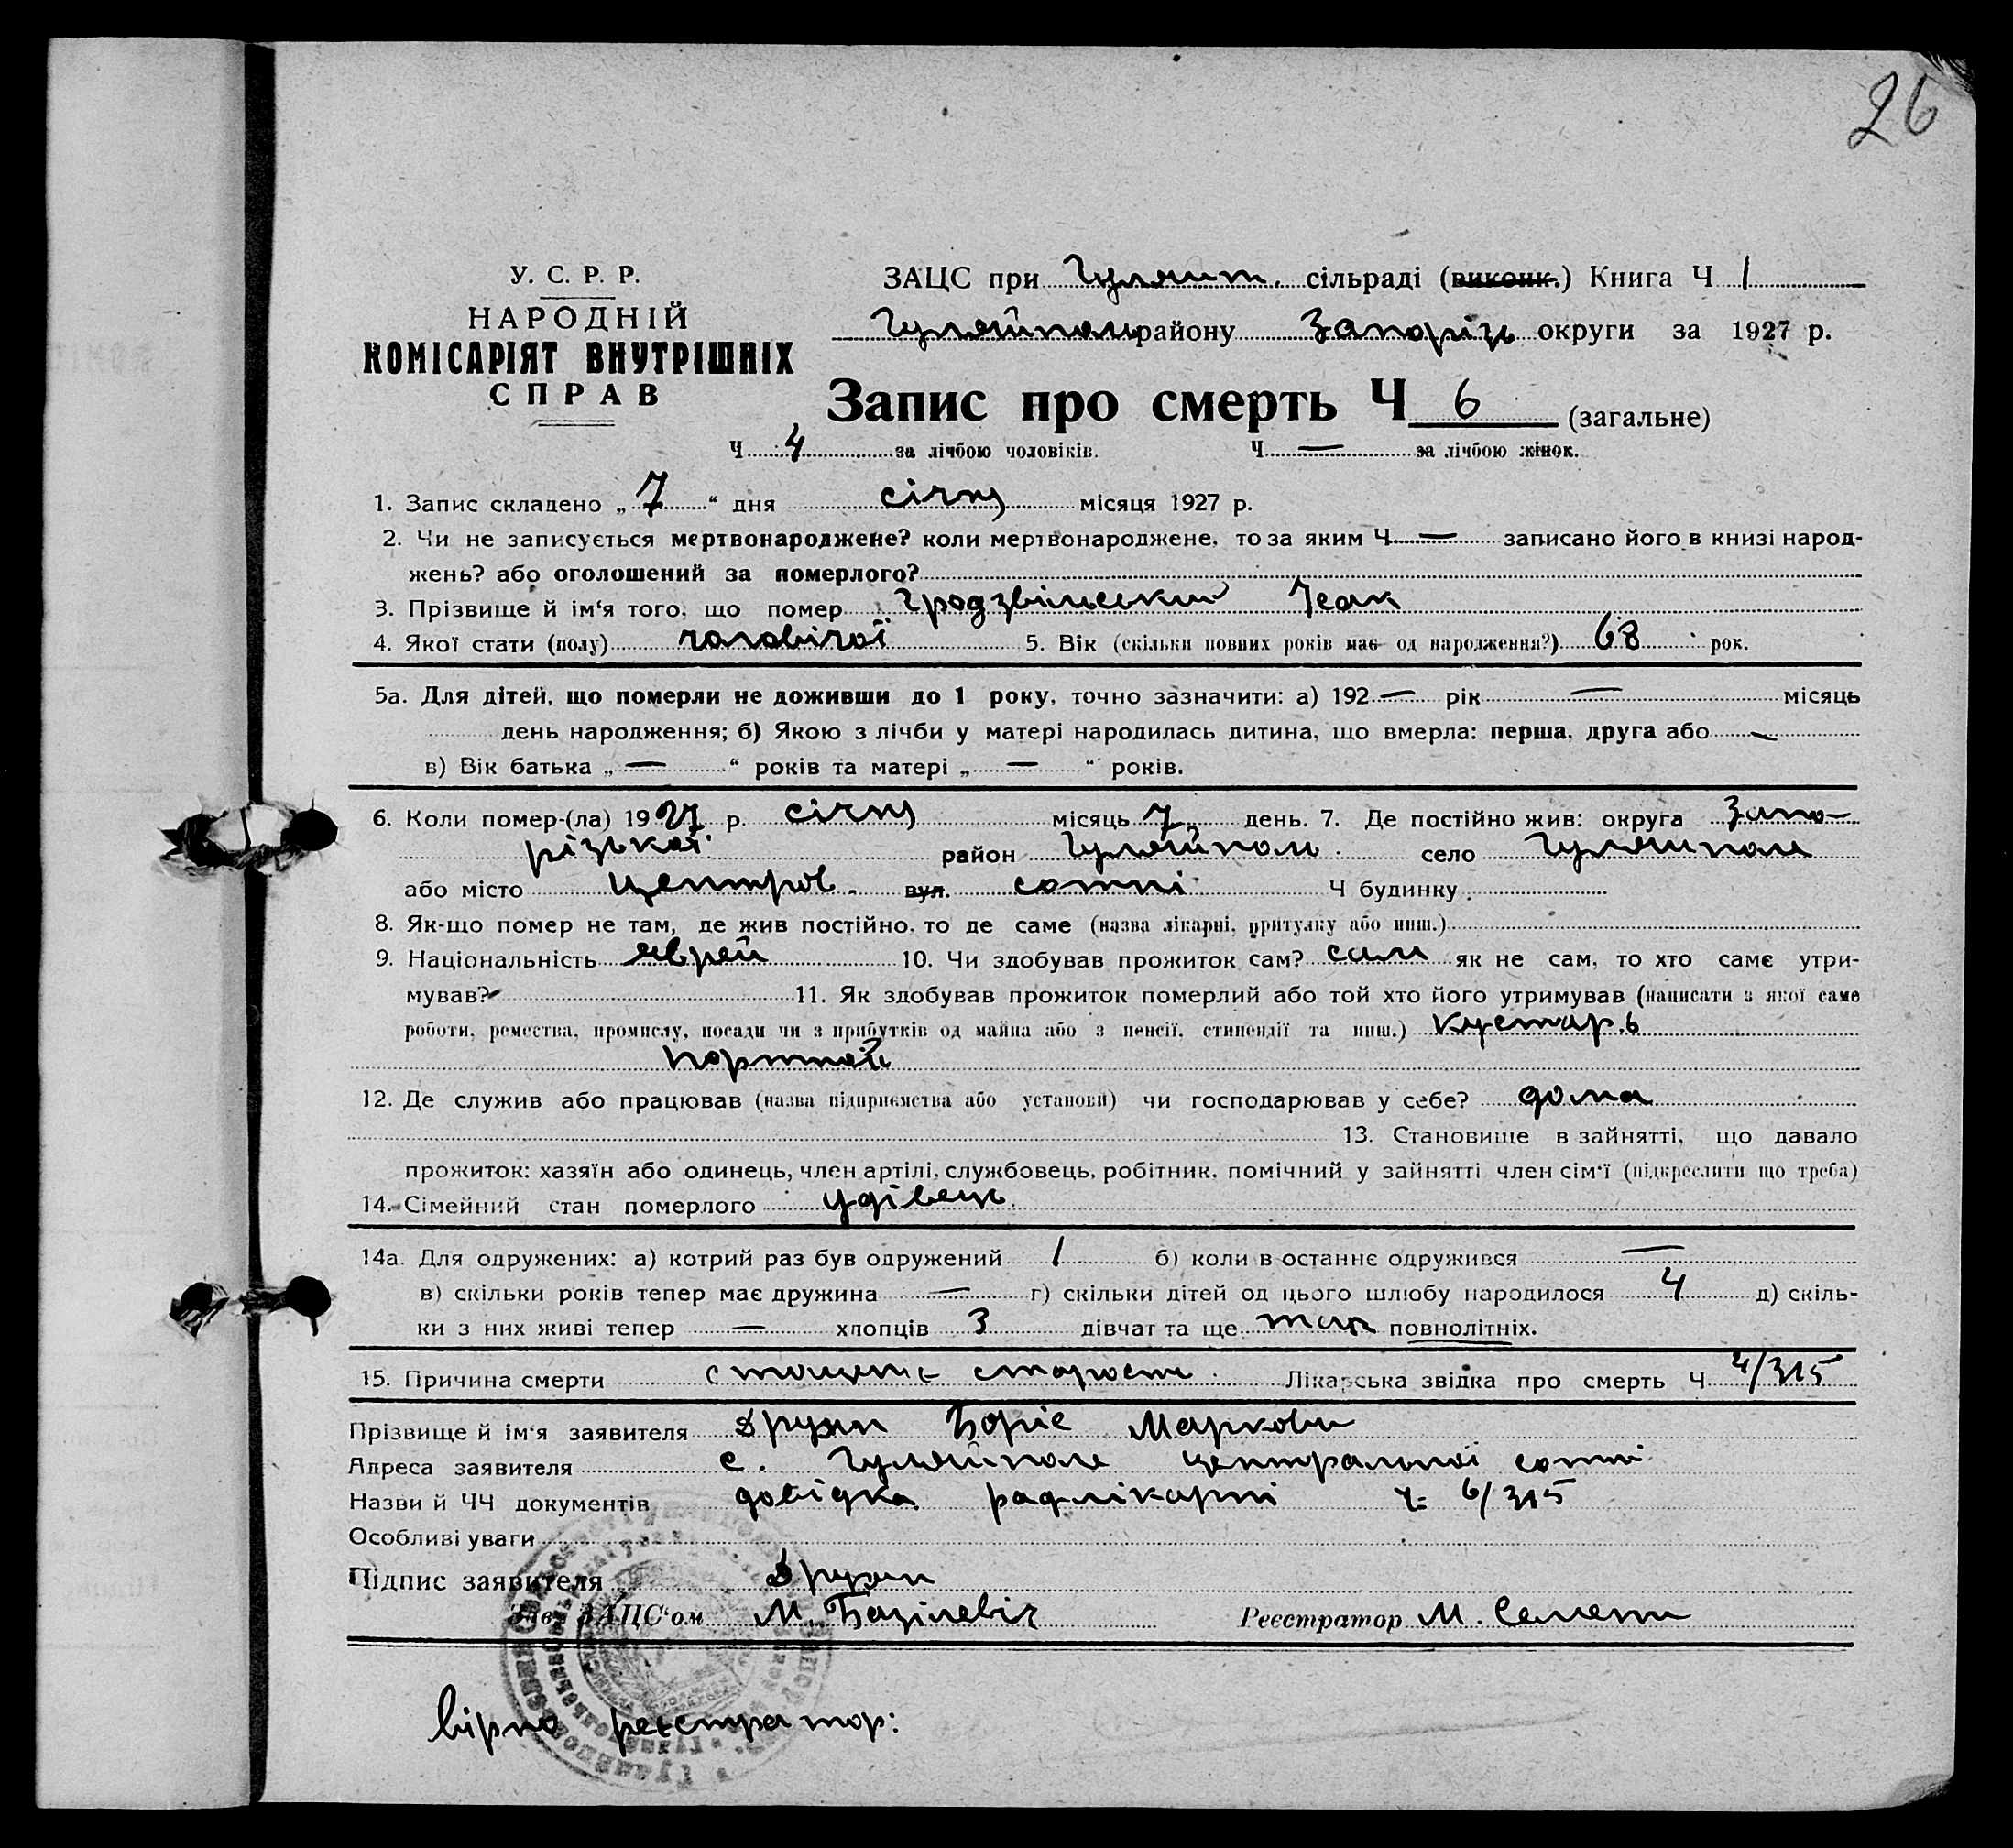 26
У. С. Р. Р.
НАРОДНІЙ
КОМІСАРІЯТ ВНУТРІШНІХ
СПРАВ
ЗАЦС при Гуляйп. сільраді (виконк.) Книга Ч 1
Гуляйполь району Запоріз округи за 1927 р.
Запис про смерть Ч 6 (загальне)
Ч 4 за лічбою чоловіків. Ч — за лічбою жінок.
1. Запис складено „ 7 “ дня січня місяця 1927 р.
2. Чи не записується мертвонароджене? коли мертвонароджене, то за яким Ч — записано його в книзі народ-
жень? або оголошений за померлого?
3. Прізвище й ім‘я того, що помер Ісак
4. Якої стати (полу) чоловічої 5. Вік (скільки повних років має од народження?) 68 рок.
5а. Для дітей, що померли не доживши до 1 року, точно зазначити: а) 192 — рік — місяць
день народження; б) Якою з лічби у матері народилась дитина, що вмерла: перша, друга або —
в) Вік батька „ — “ років та матері „ — “ років.
6. Коли помер-(ла) 1927 р. січня місяць 7 день. 7. Де постійно жив: округа Запо-
різької район Гуляйполь село Гуляйполе
або місто Центров. вул. сотні Ч будинку
8. Як-що помер не там, де жив постійно, то де саме (назва лікарні, притулку або инш.)
9. Національність яврей 10. Чи здобував прожиток сам? сам як не сам, то хто саме утри-
мував? 11. Як здобував прожиток померлий або той хто його утримував (написати з якої саме
роботи, ремества, промислу, посади чи з прибутків од майна або з пенсії, стипендії та инш.) Кустар.
портной
12. Де служив або працював (назва підприємства або установи) чи господарював у себе? дома
13. Становище в зайнятті, що давало
прожиток: хазяїн або одинець, член артілі, службовець, робітник, помічний у зайнятті член сім‘ї (підкреслити що треба)
14. Сімейний стан померлого удівець.
14а. Для одружених: а) котрий раз був одружений 1 б) коли в останнє одружився —
в) скільки років тепер має дружина — г) скільки дітей од цього шлюбу народилося 4 д) скіль-
ки з них живі тепер — хлопців 3 дівчат та ще повнолітніх.
15. Причина смерти старости Лікарська звідка про смерть Ч 4/315
Прізвище й ім‘я заявителя Друян Боріс Маркови
Адреса заявителя с. Гуляйполе центральної сотні
Назви й ЧЧ документів довідка райлікарні ч. 6/315
Особливі уваги
Підпис заявителя Друян
Зав. ЗАЦС‘ом М. Базілевіч Реєстратор М.
вірно реєстратор: